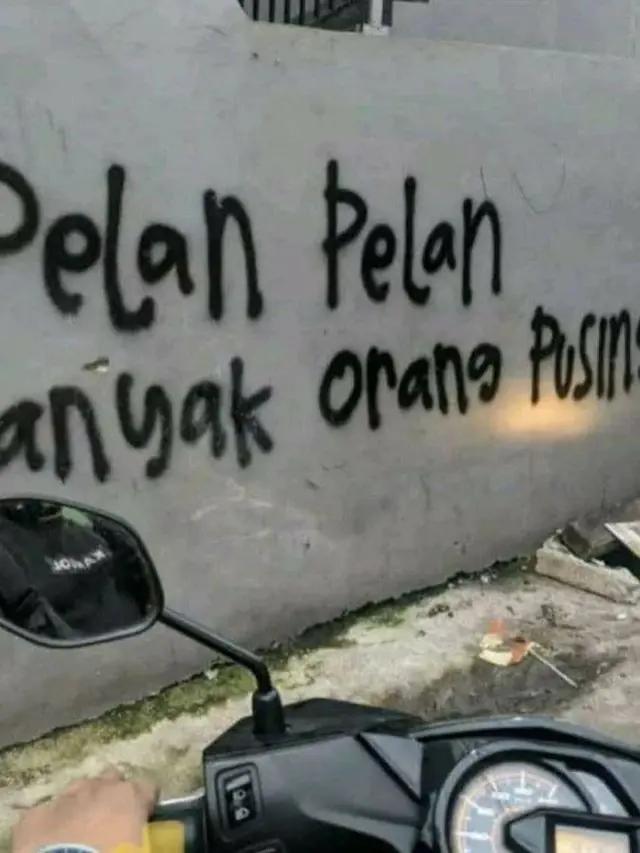 Pelan Pelan
anyak orang Pusing